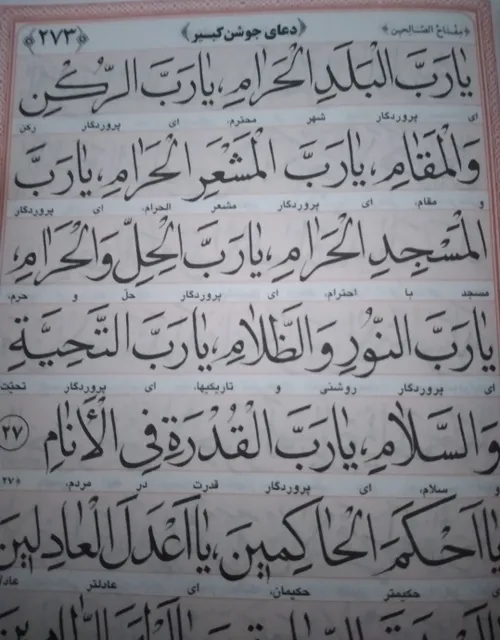 ﴿مفتاح الصّالحین﴾ ﴿دعای جوشن کبیر﴾ ﴿۲۷۳﴾
یٰارَبَّ الْبَلَدِ الْحَرٰامِ، یٰارَبَّ الرُّکْنِ
ای پروردگار شهر محترم، ای پروردگار رکن
وَالْمَقٰامِ، یٰارَبَّ الْمَشْعَرِ الْحَرٰامِ، یٰارَبَّ
و مقام، ای پروردگار مشعر الحرام، ای پروردگار
الْمَسْجِدِ الْحَرٰامِ، یٰارَبَّ الْحِلِّ وَالْحَرٰامِ،
مسجد با احترام، ای پروردگار حل و حرم،
یٰارَبَّ النُّورِ وَالظَّلاٰمِ، یٰارَبَّ التَّحِیَّةِ
ای پروردگار روشنی و تاریکیها، ای پروردگار تحیّت
وَالسَّلاٰمِ، یٰارَبَّ الْقُدْرَةِ فِی الْأَنٰامِ ۲۷
و سلام، ای پروردگار قدرت در مردم، ﴿۲۷
یٰااَحْکَمَ الْحٰاکِمینَ، یٰااَعْدَلَ الْعٰادِلینَ
ای حکیمتر حکیمان، ای عادلتر